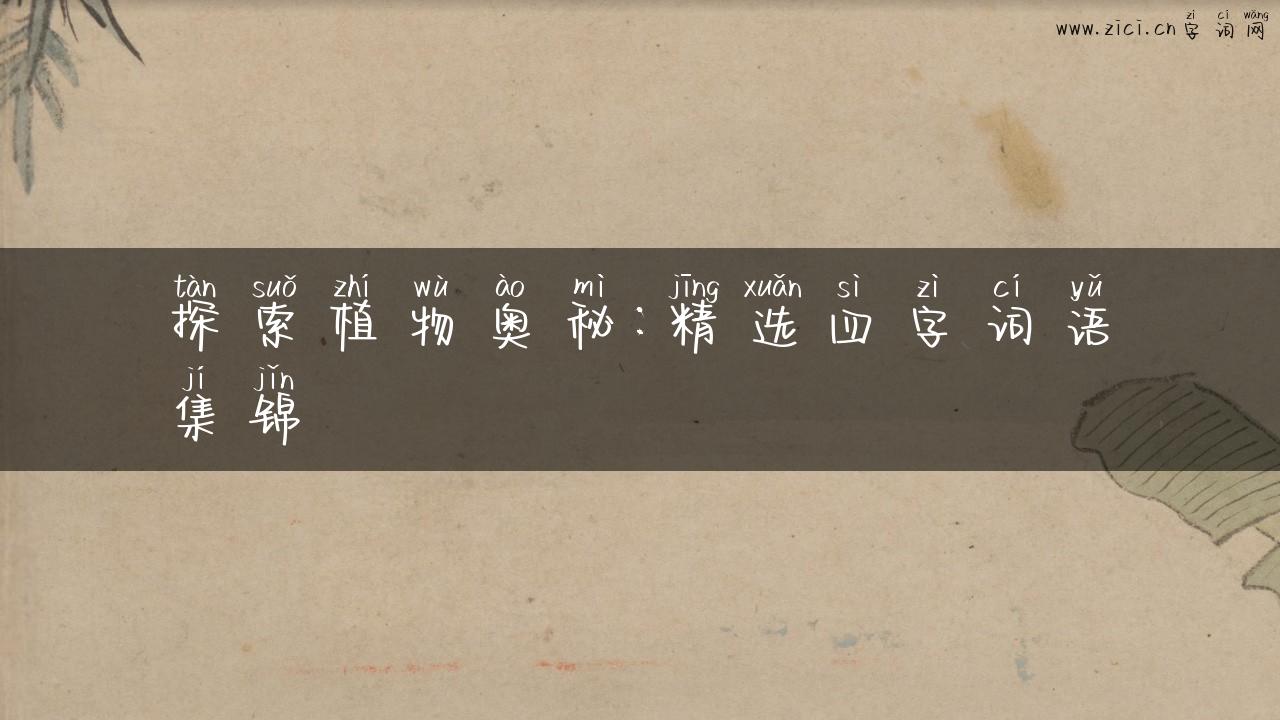 zì cí wǎng
www.zici.cn 字词网
tàn suǒ zhí wù ào mì jīng xuǎn sì zì cí yǔ
探索植物奥秘:精选四字词语
jí jǐn
集锦